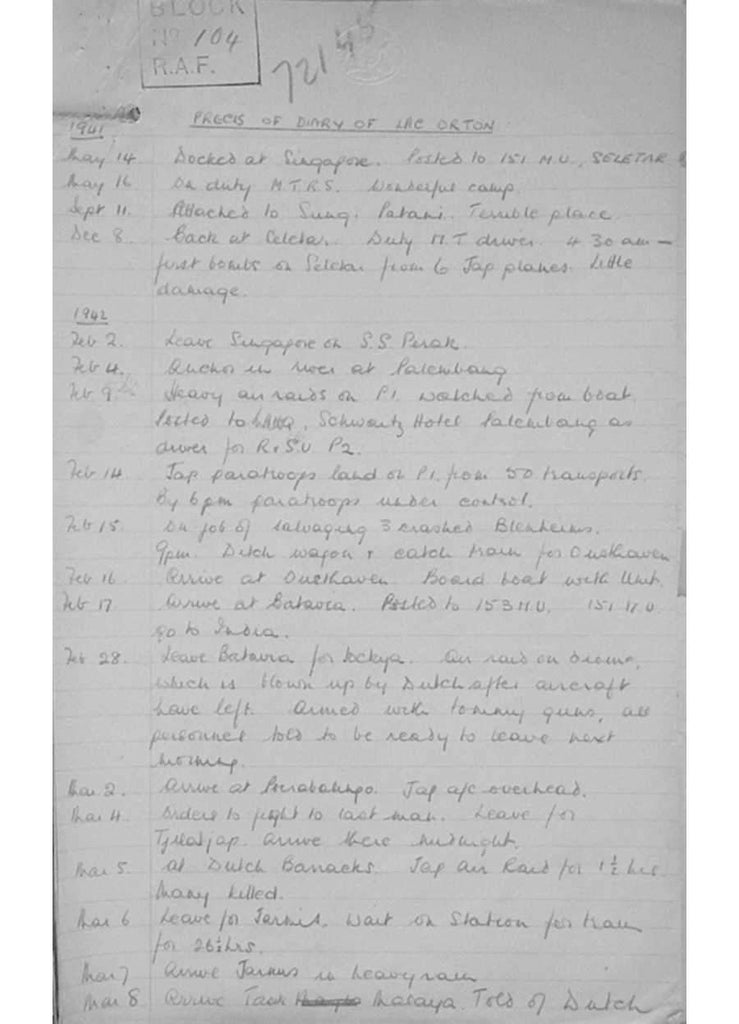 BLOCK
No 104
R.A.F.
PRECIS OF DIARY OF LAC ORTON
1941
May 14 Docked at Singapore. Posted to 151 M.U., SELETAR
May 16 On duty M.T.R.S. Wonderful camp.
Sept 11. Attached to Sung. Patani. Terrible place.
Dec 8. Back at Seletar. Duty M T driver. 4 30 am -
first bombs on Seletar from 6 Jap planes. Little
damage.
1942
Feb 2. Leave Singapore on S.S. Perak.
Feb 4. Anchor in river at Palembang
Feb 9 Heavy air raids on P1 watched from boat.
Posted to Schwartz Hotel Palembang as
driver for R.S.U P2.
Feb 14 Jap paratroops land on P1. from 50 transports.
By 6 pm paratroops under control.
Feb 15. On job of salvaging 3 crashed Blenheims.
9pm. Ditch wagon & catch train for Oosthaven
Feb 16 Arrive at Oosthaven. Board boat with Unit.
Feb 17 Arrive at Batavia. Posted to 153 M.U. 151 M.U.
go to India.
Feb 28. Leave Batavia for Air raid on drome,
which is blown up by Dutch after aircraft
have left. Armed with tommy guns, all
personnel told to be ready to leave next
morning.
Mar 2. Arrive at Jap a/c overhead.
Mar 4. Orders to fight to last man. Leave for
Tjilatjap. Arrive there midnight.
Mar 5. at Dutch Barracks. Jap Air Raid for 1½ hrs.
Many killed.
Mar 6 Leave for Wait on Station for train
for 26½ hrs.
Mar 7 Arrive in heavy rain
Mar 8 Arrive Malaya. Told of Dutch